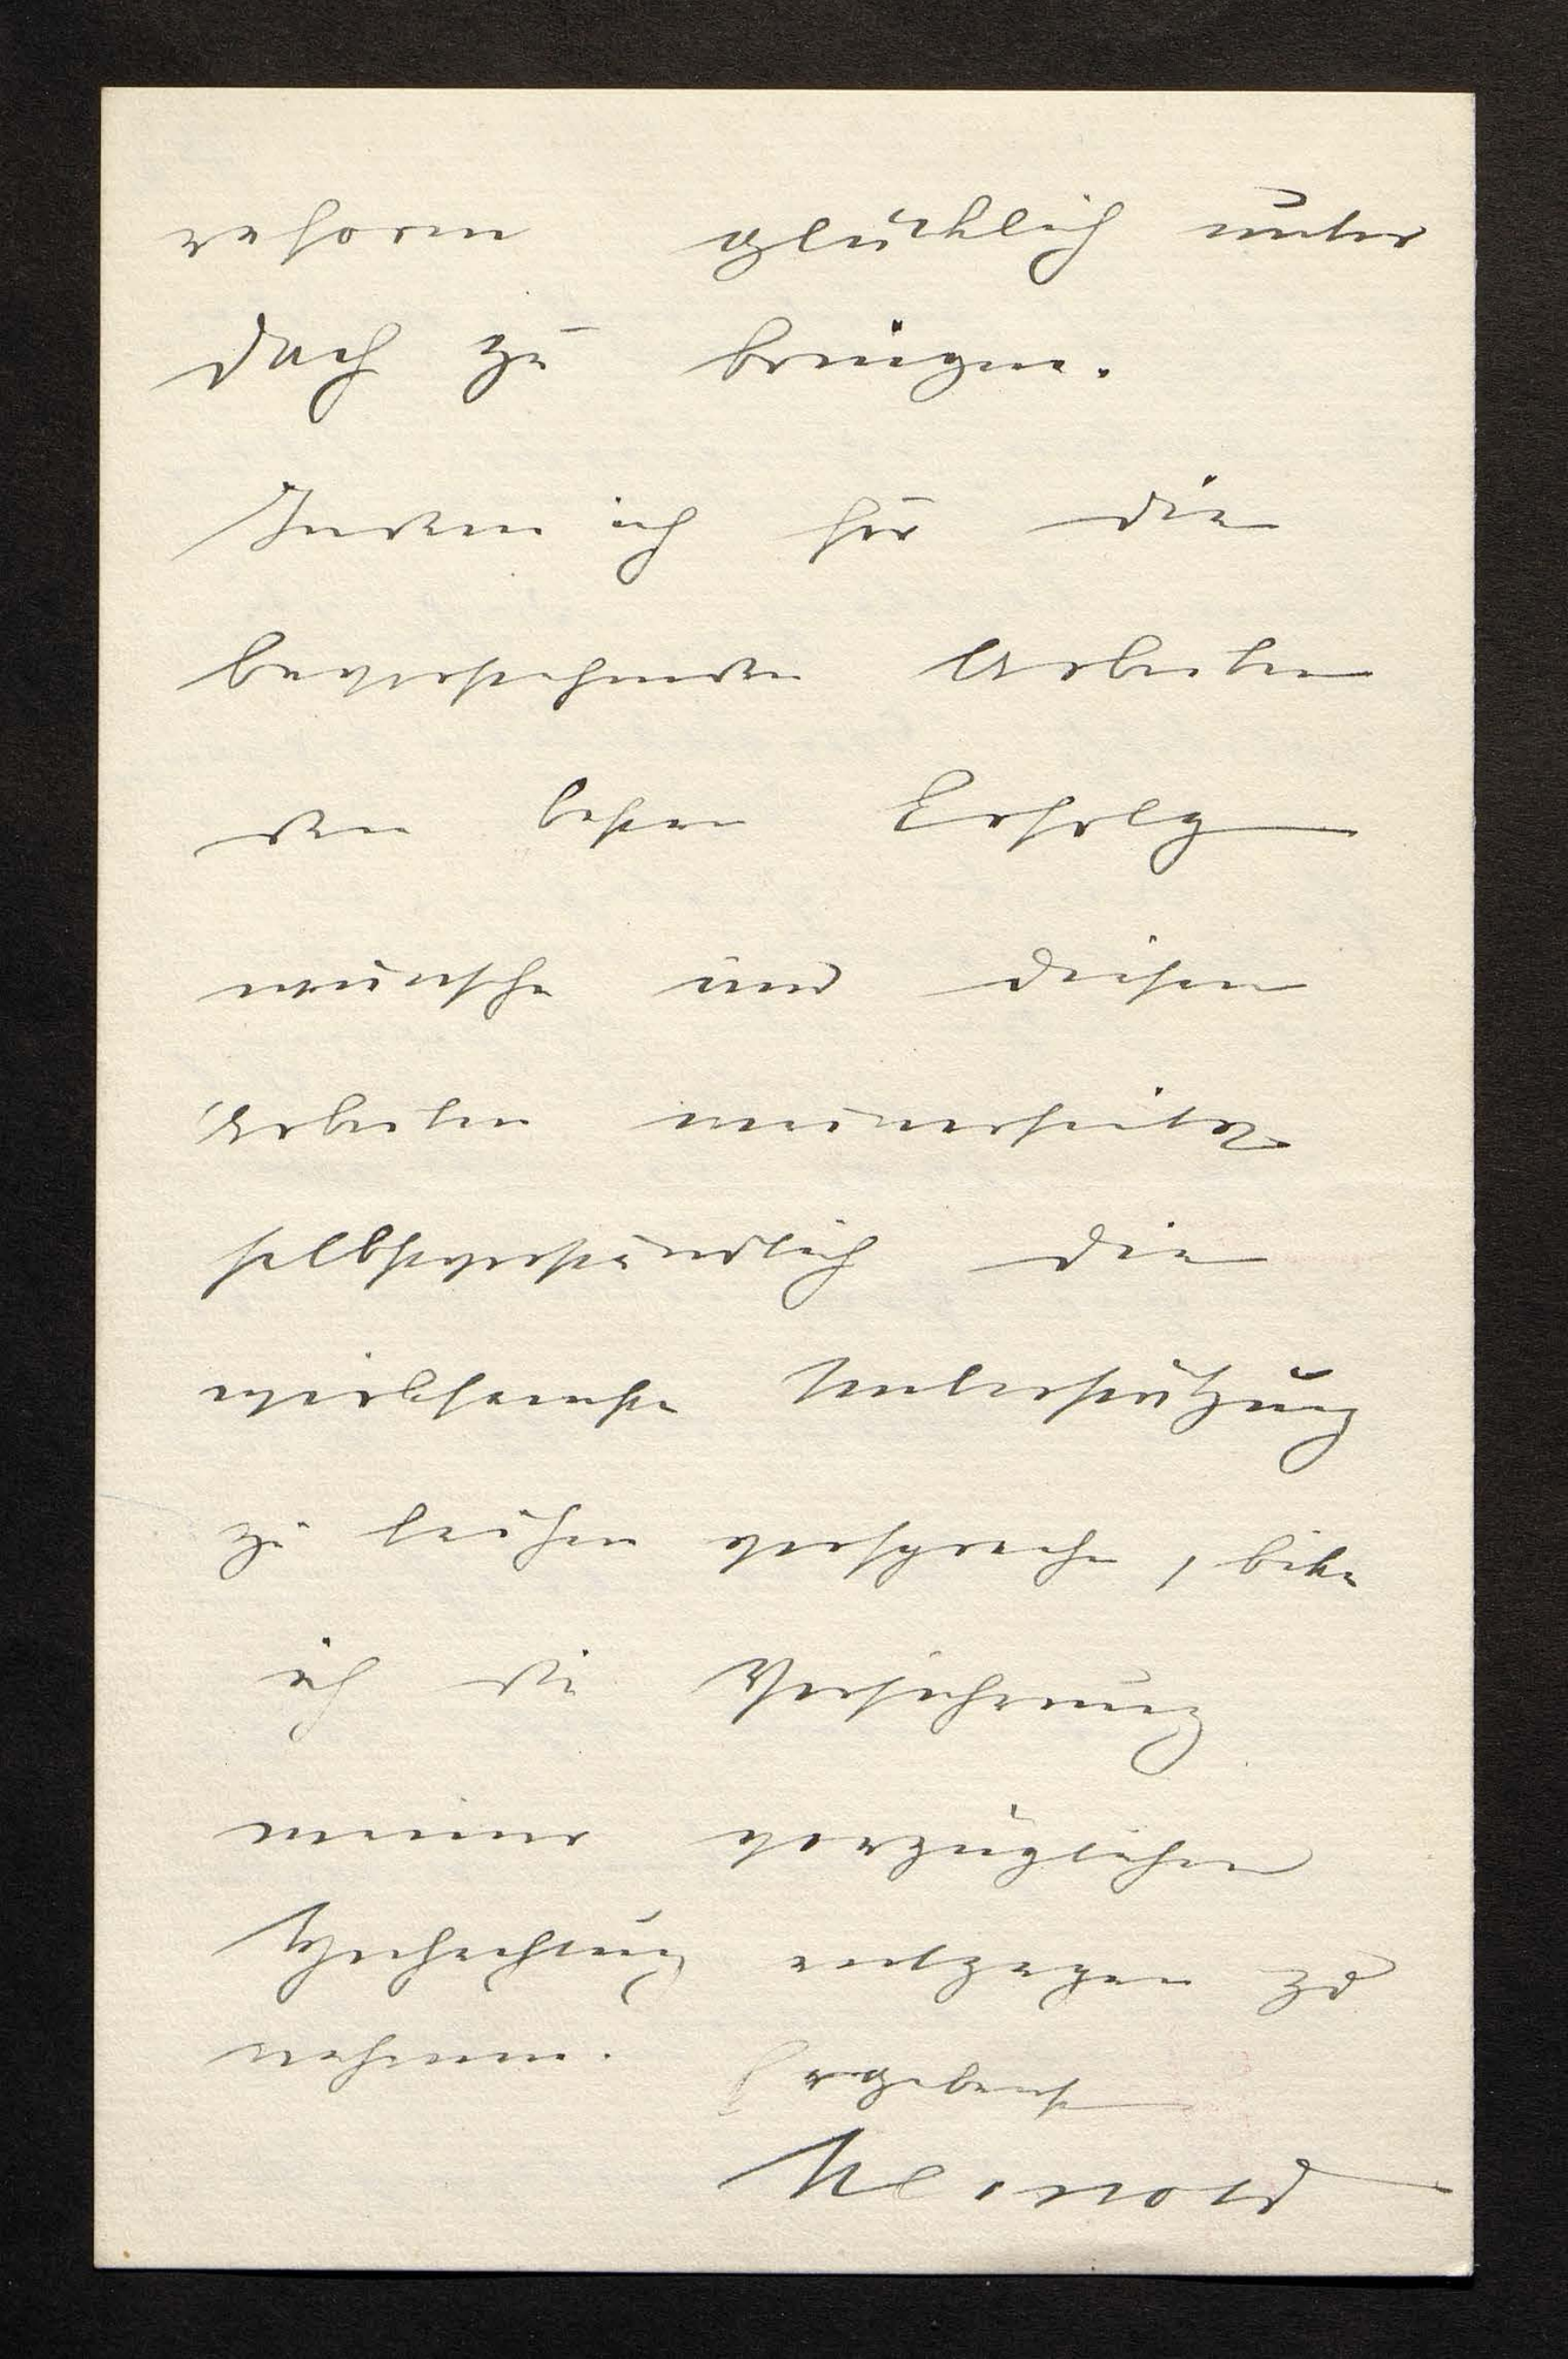 reform glücklich unter
Dach zu bringen.
Indem ich für die
bevorstehenden Arbeiten
den besten Erfolg
wünsche und diesen
Arbeiten meinerseits
selbstverständlich die
wirksamste Unterstützung
zu leihen verspreche, bitte
ich die Versicherung
meiner vorzüglichen
Hochachtung entgegen zu
nehmen. Ergebenst